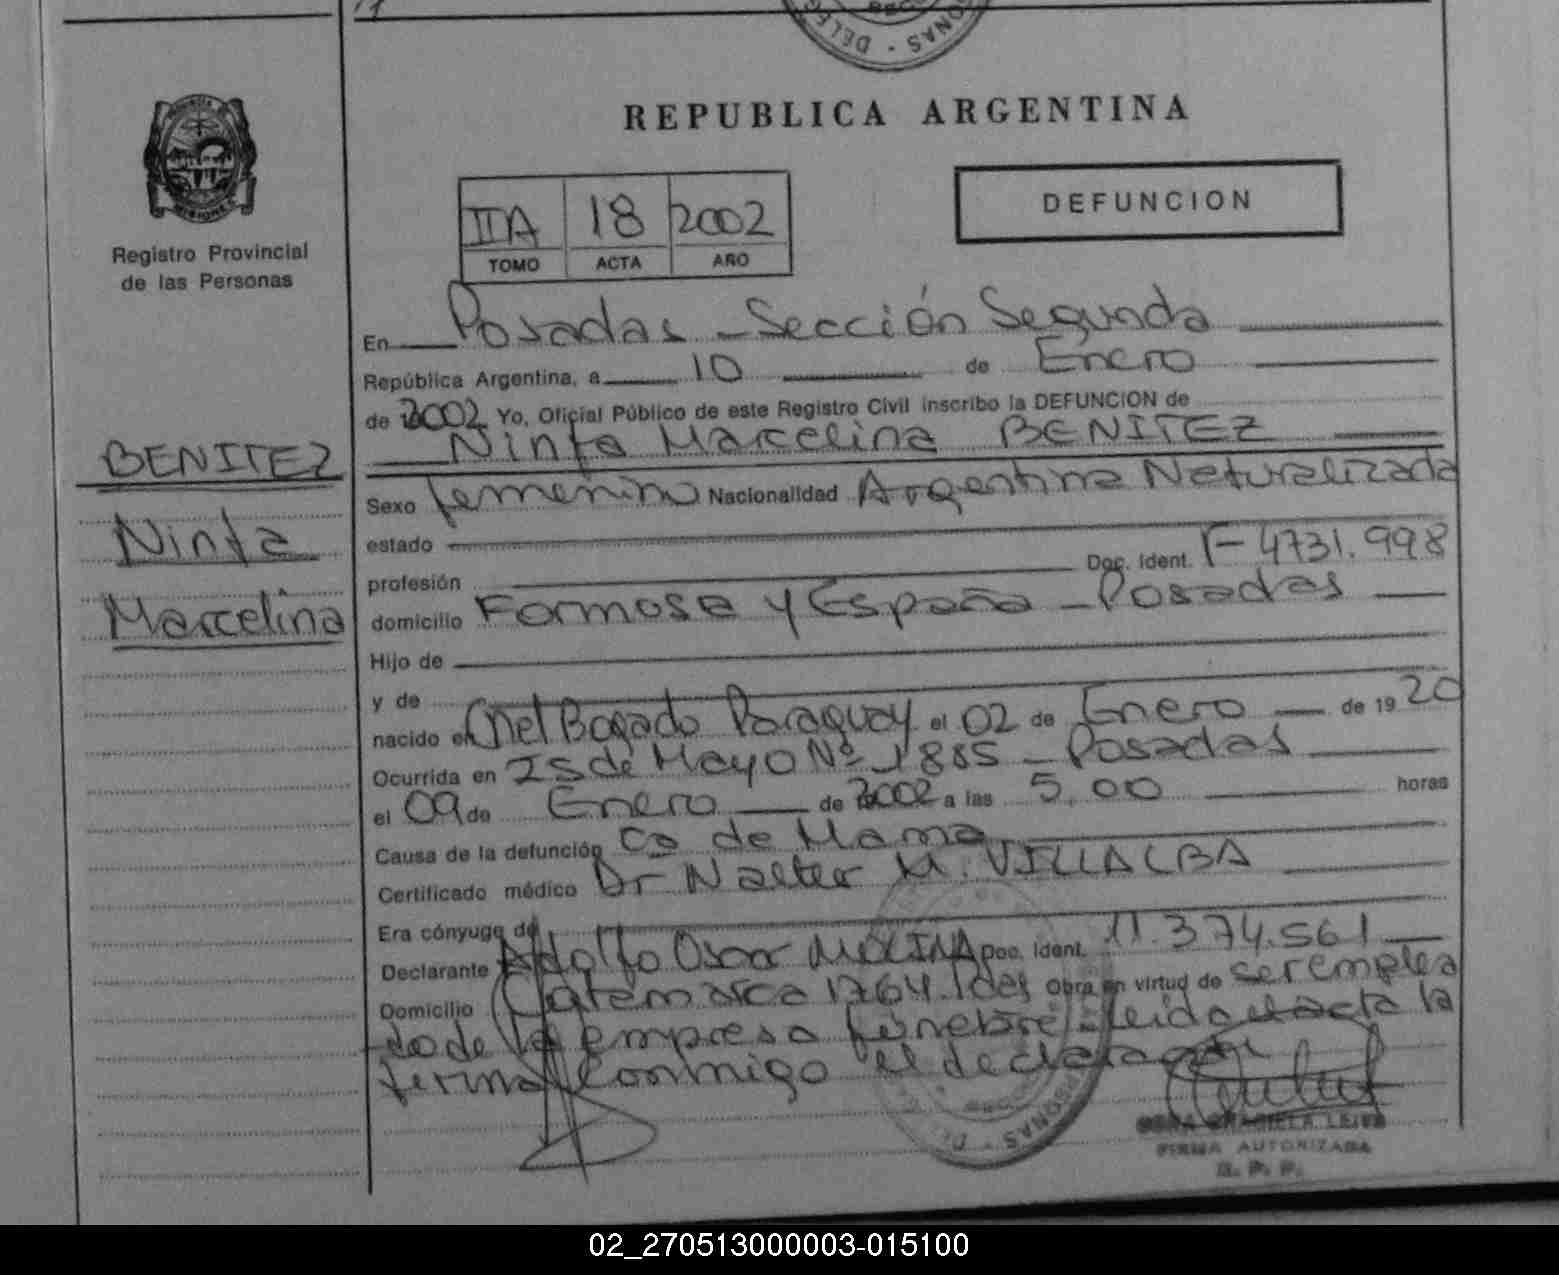 DELEG
ONAS - DEL
REPUBLICA ARGENTINA
PROVINCIA
MISIONES
Registro Provincial
de las Personas
IIA 18 2002
TOMO ACTA AÑO
DEFUNCION
En Posadas - Sección Segunda
República Argentina, a 10 de Enero
de 2002 Yo, Oficial Público de este Registro Civil inscribo la DEFUNCION de
Ninfa Marcelina BENITEZ
BENITEZ
Ninfa
Marcelina
Sexo femenino Nacionalidad Argentina Naturalizada
estado
profesión Doc. Ident. F-4731.998
domicilio Formosa y España - Posadas
Hijo de
y de
nacido en Cnel Bogado Paraguay el 02 de Enero de 1920
Ocurrida en 25 de Mayo Nº 1885 - Posadas
el 09 de Enero de 2002 a las 5,00 horas
Causa de la defunción Ca de Mama
Certificado médico Dr Walter M. VILLALBA
Era cónyuge de
Declarante Adolfo Oscar MOLINA Doc. Ident. 11.374.561
Domicilio Catamarca 1764. Pdas Obra en virtud de ser emplea
do de la empresa fúnebre. Leida el acta la
firma conmigo el declarante
GRACIELA LEIVA
FIRMA AUTORIZADA
R. P. P.
02_270513000003-015100